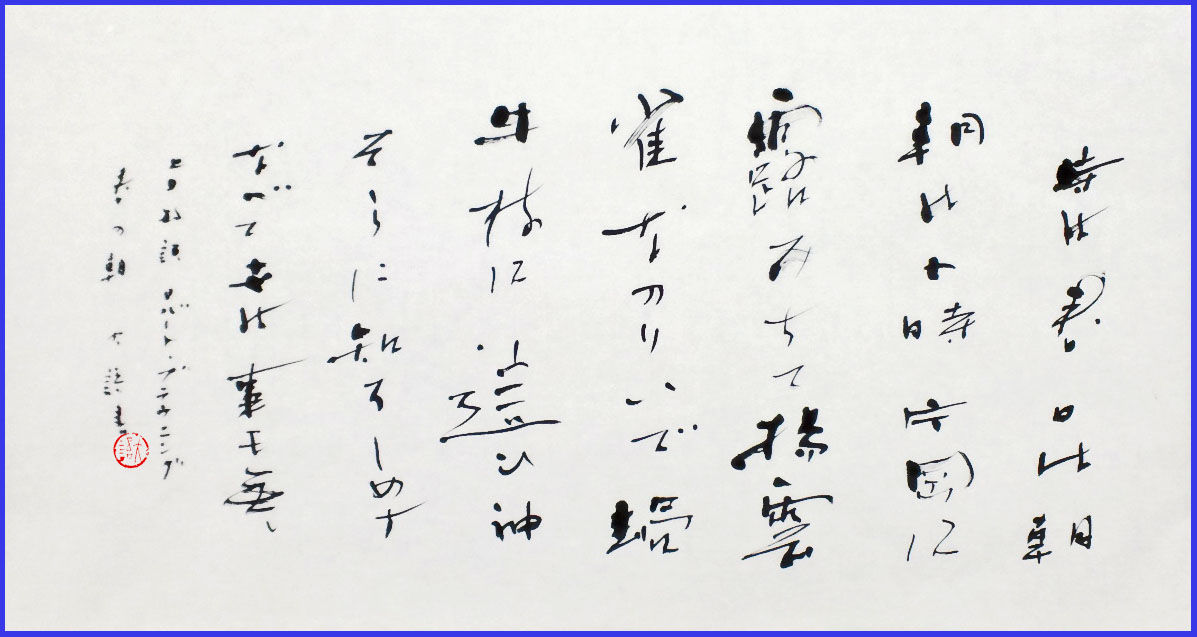 時は春日は朝
朝は七時片岡に
露みちて揚雲
雀なのりいで蝸
牛枝に這ひ神
そらに知ろしめす
なべて世は事も無し
上田敏訳 ロバート・ブラウニング
春の朝 書